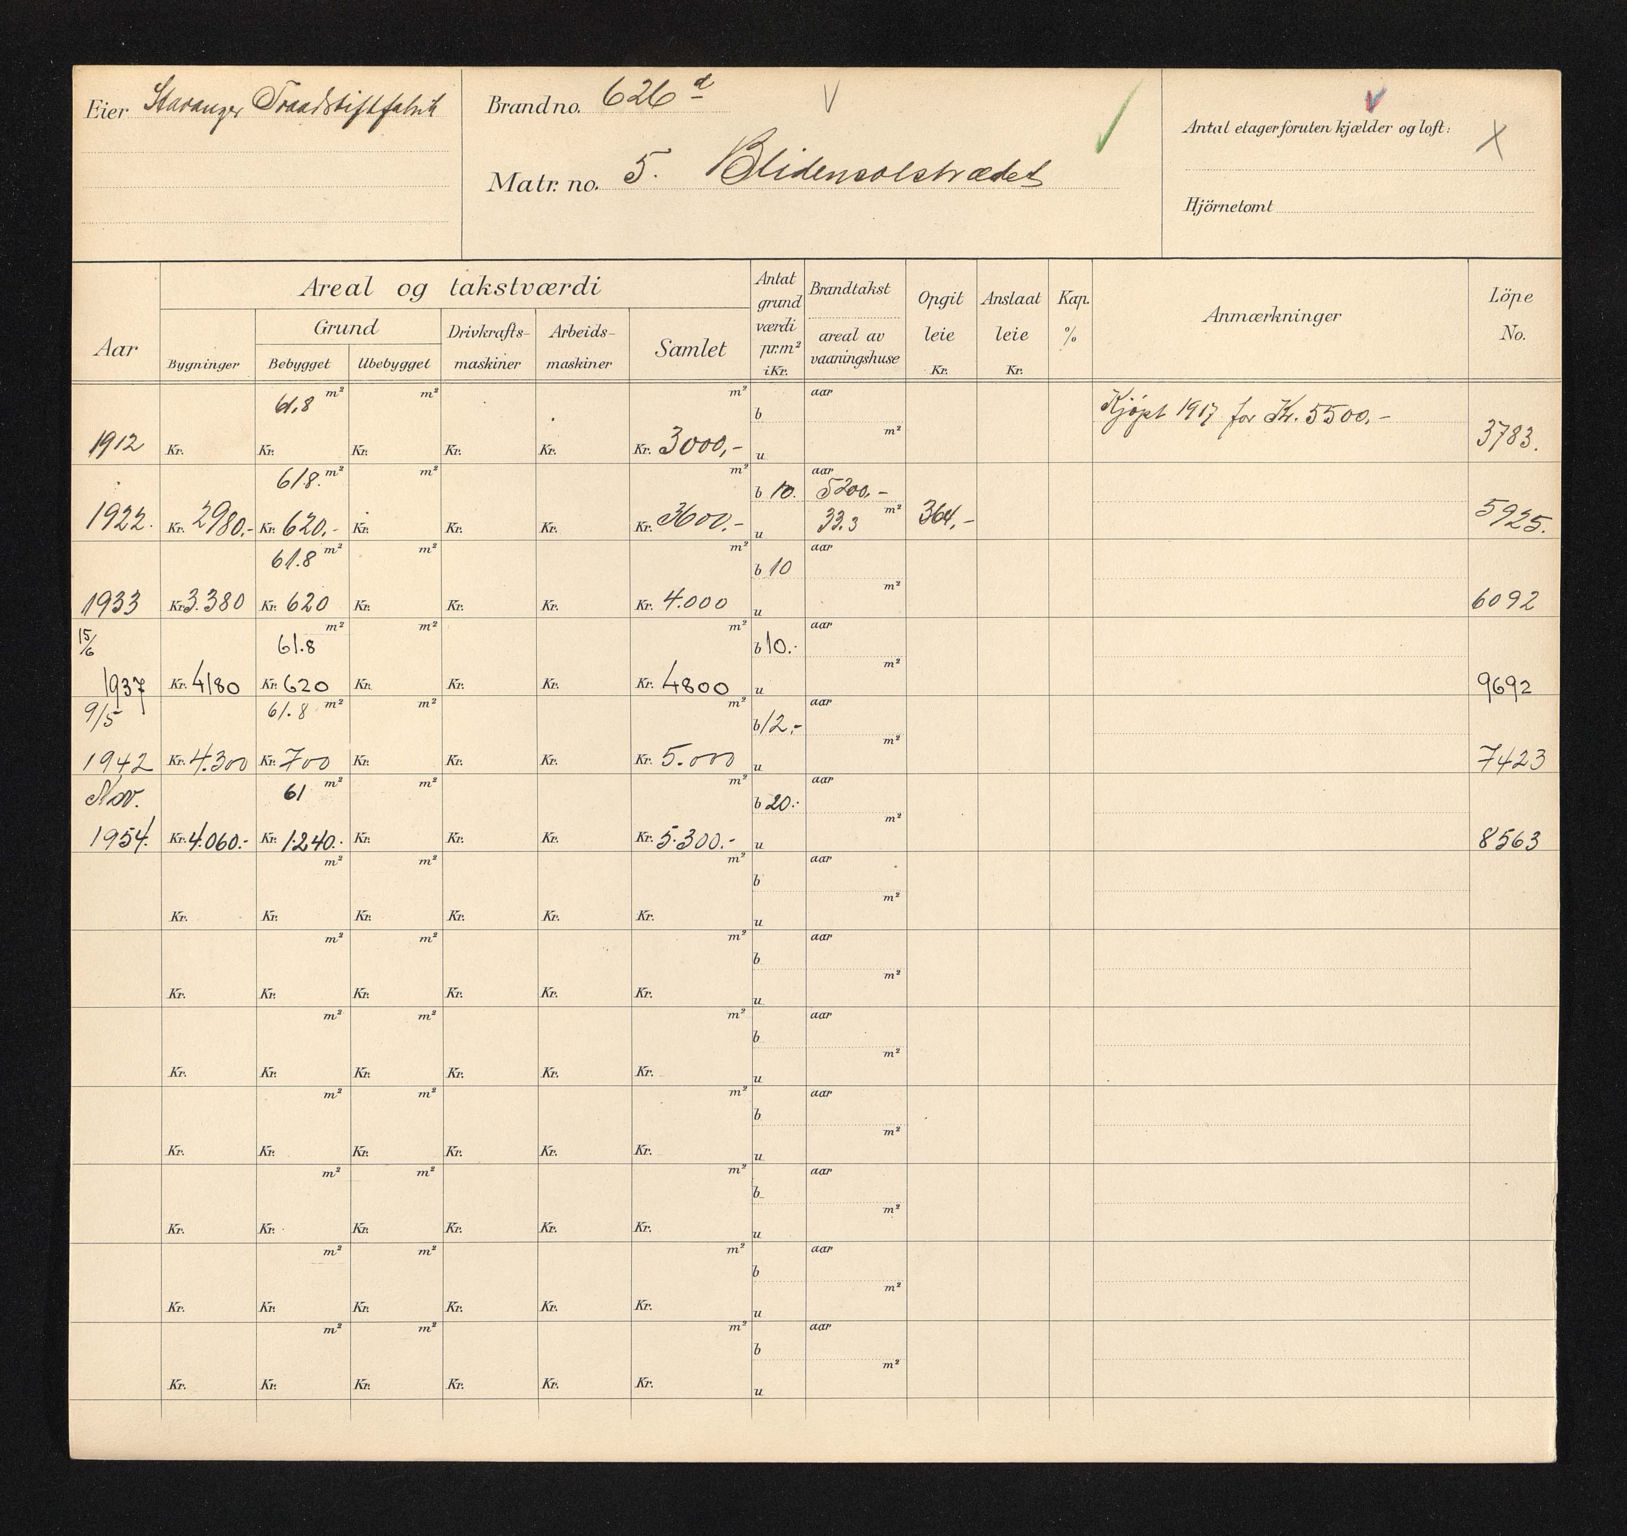 Eier Stavanger Traadstiftfabrik
Brand no. 626 d
Matr. no. 5. Blidensolstrædet
Antal etager foruten kjælder og loft:
Hjörnetomt
Aar
Areal og takstværdi
Bygninger
Grund
Bebygget
Ubebygget
Drivkrafts-
maskiner
Arbeids-
maskiner
Samlet
Antat
grund
værdi
pr. m²
i Kr.
Brandtakst
areal av
vaaningshuse
Opgit
leie
Kr.
Anslaat
leie
Kr.
Kap.
%
Anmærkninger
Löpe
No.
61,8 m² m² m² aar
b Kjøpt 1917 for Kr. 5500,-
m²
1912 Kr. Kr. Kr. Kr. Kr. Kr. 3000,- u 3783.
61.8 m² m² m² aar
b 10. 5200.-
m²
1922. Kr. 2980.- Kr. 620,- Kr. Kr. Kr. Kr. 3600.- u 33.3 364,- 5925.
61.8 m² m² m² aar
b 10
m²
1933 Kr. 3.380 Kr. 620 Kr. Kr. Kr. Kr. 4.000 u 6092
15/6 61.8 m² m² m² aar
b 10.-
m²
1937 Kr. 4180 Kr. 620 Kr. Kr. Kr. Kr. 4800 u 9692
9/5 61.8 m² m² m² aar
b 12.-
m²
1942 Kr. 4.300 Kr. 700 Kr. Kr. Kr. Kr. 5.000 u 7423
Nov. 61 m² m² m² aar
b 20.-
m²
1954. Kr. 4.060.- Kr. 1.240.- Kr. Kr. Kr. Kr. 5.300.- u 8563
m² m² m² aar
b
m²
Kr. Kr. Kr. Kr. Kr. Kr. u
m² m² m² aar
b
m²
Kr. Kr. Kr. Kr. Kr. Kr. u
m² m² m² aar
b
m²
Kr. Kr. Kr. Kr. Kr. Kr. u
m² m² m² aar
b
m²
Kr. Kr. Kr. Kr. Kr. Kr. u
m² m² m² aar
b
m²
Kr. Kr. Kr. Kr. Kr. Kr. u
m² m² m² aar
b
m²
Kr. Kr. Kr. Kr. Kr. Kr. u
m² m² m² aar
b
m²
Kr. Kr. Kr. Kr. Kr. Kr. u